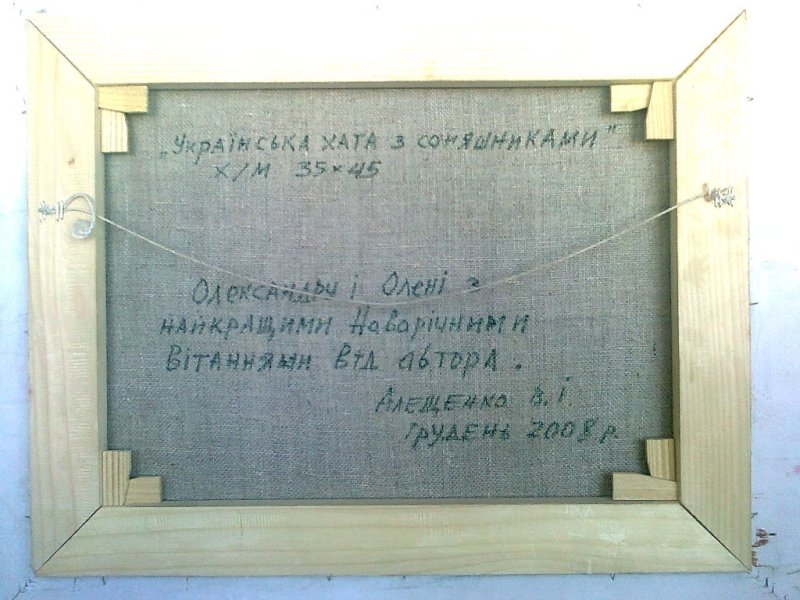 „Українська хата з соняшниками"
х/м 35×45
Олександру і Олені з
найкращими Новорічними
вітаннями від автора.
Алещенко В.І.
грудень 2008 р.